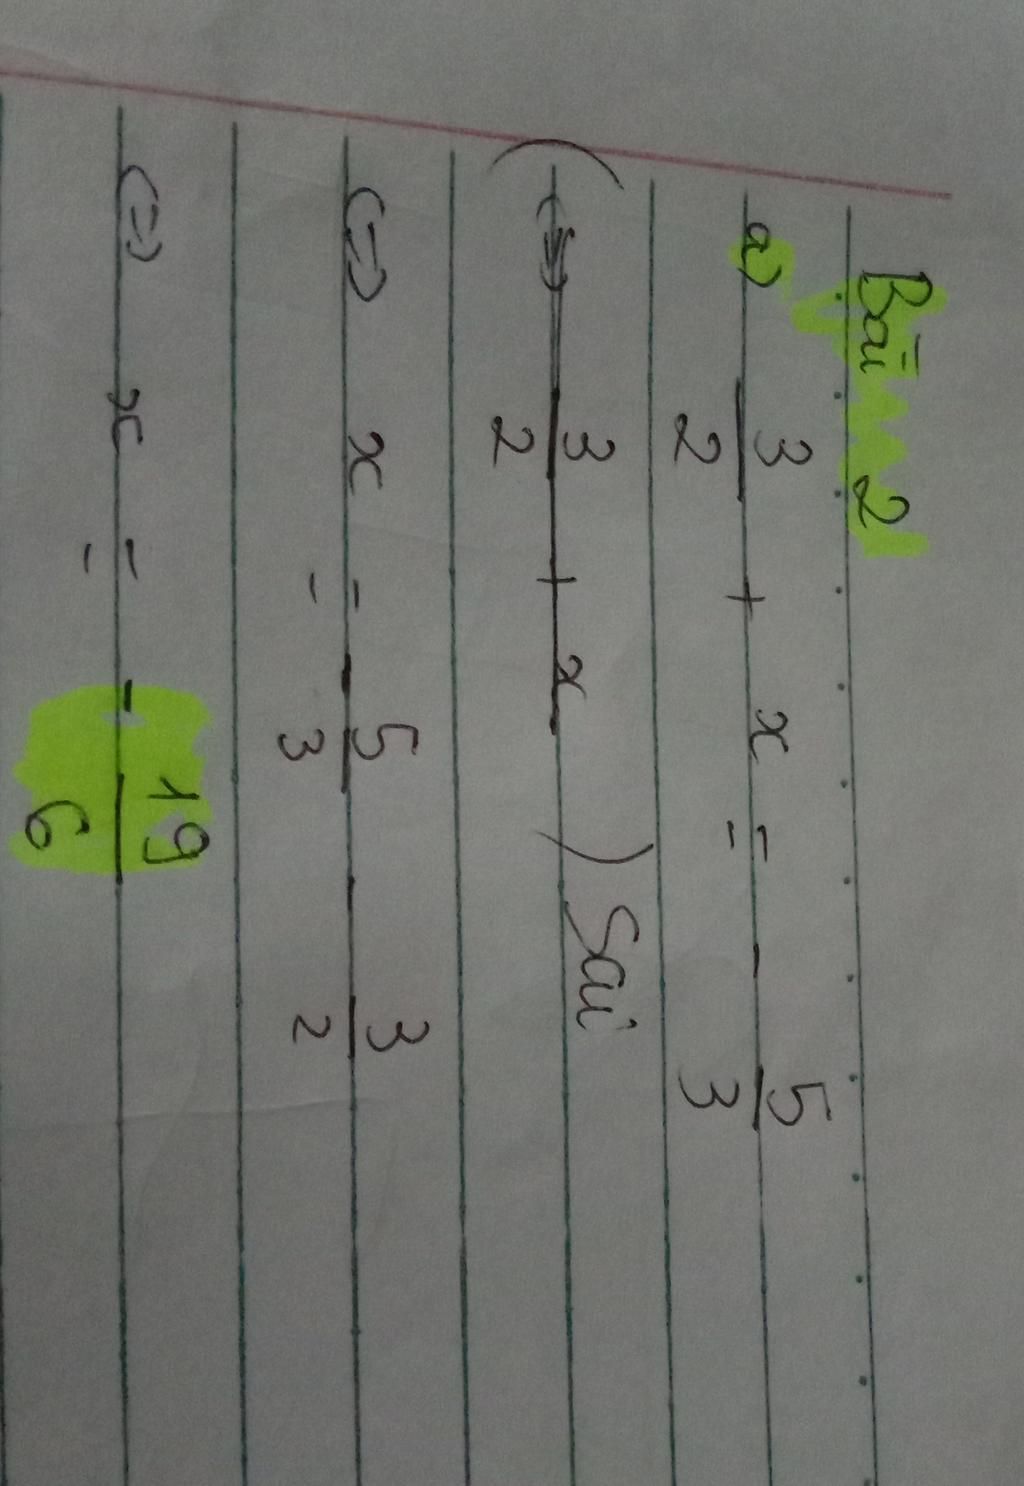 Bài 2
a) 3/2 + x = - 5/3
(<=> 3/2 + x ) Sai
<=> x = - 5/3 - 3/2
<=> x = - 19/6